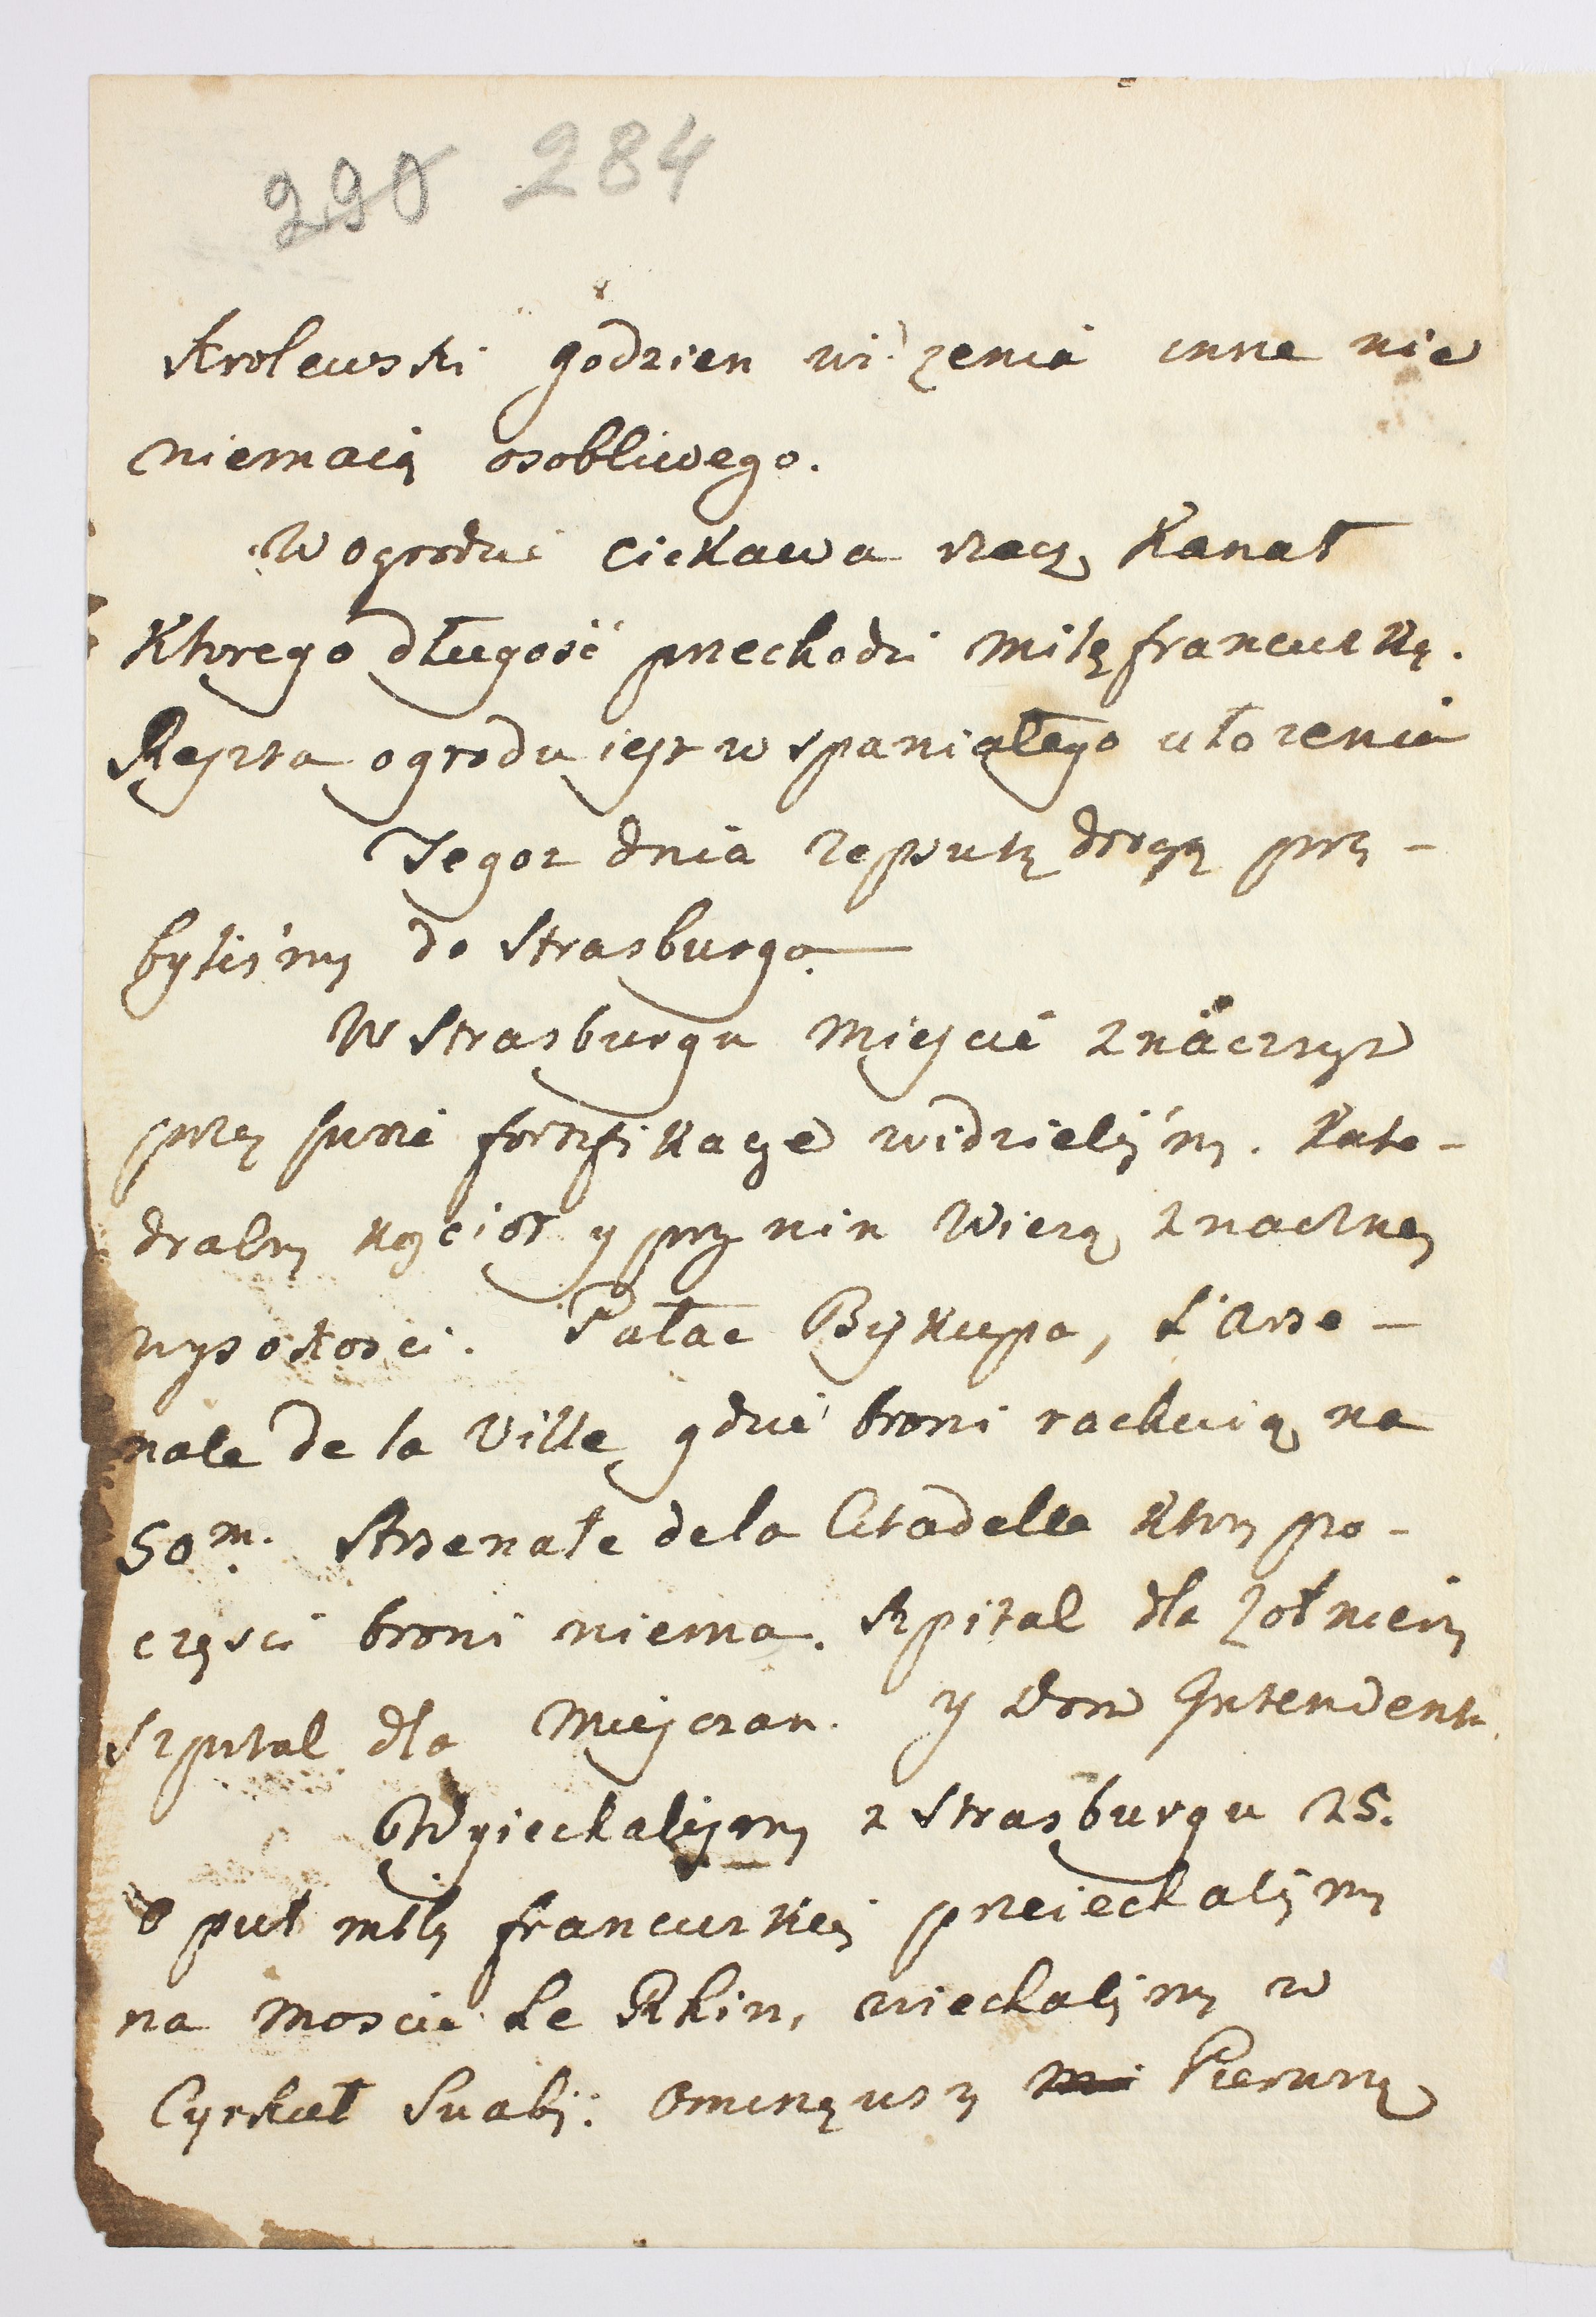 290 284
Krolewski godzien widzenia inne nic
niemaią osobliwego.
W ogrodzie ciekawa rzecz Kanał
Ktorego długość przechodzi milę francuską.
Reszta ogrodu iest wspaniałego ułozenia
Tegoz dnia zepsutą drogą przy-
byliśmy do Strasburga
W Strasburgu mieście znacznym
przy fortyfikacye widzieliśmy. Kate-
dralny kościoł y przy nim Wieżą znaczney
wysokości. Pałac Byskupa, L'Arse-
nale de la Ville gdzie broni rachuią na
50m. Arsenale de la Citadelle Ktory po-
części broni niema. Szpital dla Zołnierzy
Szpital dla Miejszczan. y dom Intendenta.
Wyiechalismy z Strasburgu 25.
o puł mily francuzkiey przeiechalismy
na moscie Le Rhin, wiechalismy w
Cyrkuł Suabij: ominąwszy Pierwszą